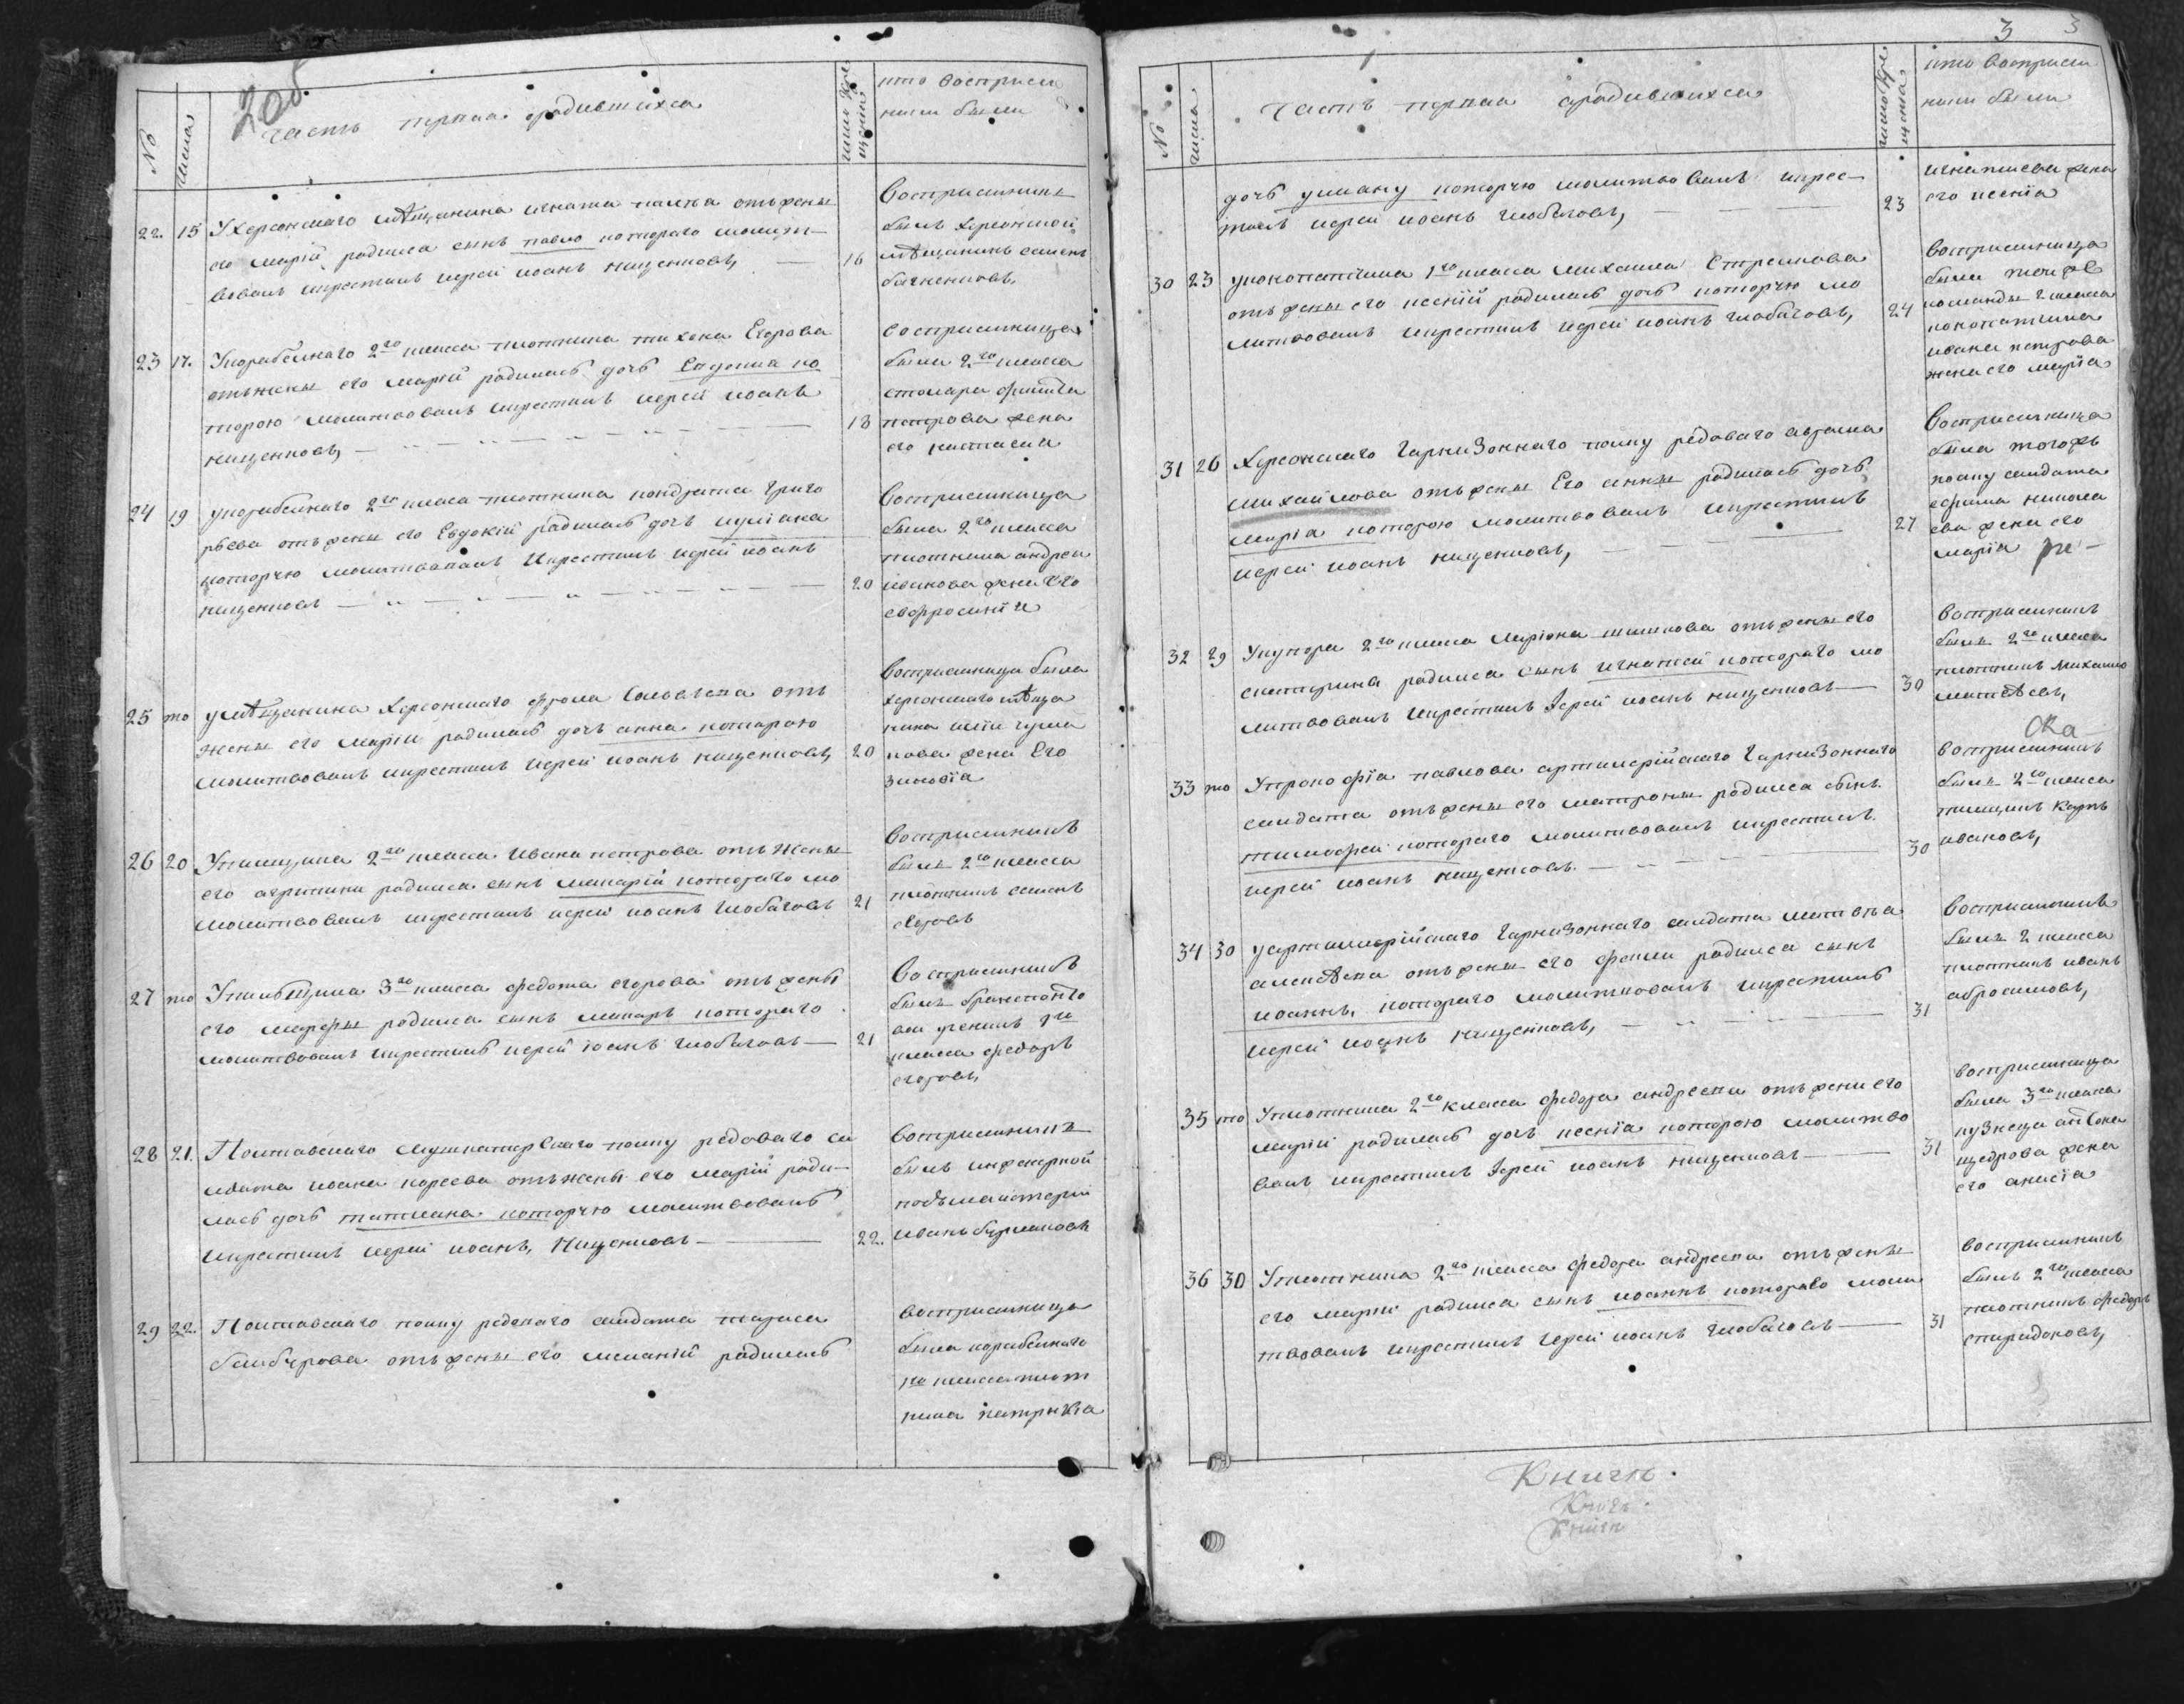 2 об
№
числа
часть первая ородившихся
число кре
щения
кто восприем
ники были
22. 15 У Херсонскаго мѣщанина игната павлова отъ жены
его маріи родился сынъ павло котораго молит-
вовалъ икрестилъ иерей иоанъ нищенковъ, —
16
восприемникъ
былъ херсонской
мѣщанинъ семенъ
23 17. Укорабелнаго 2го класа плотника тихона Егорова
отъ жены его маріи родилась дочь Евдокия ко
торою молитвовалъ икрестилъ иерей иоанъ
нищенковъ,
18
восприемница
была 2го класса
столяра филипа
петрова жена
его настасия
24 19 укорабелнаго 2го класа плотника кондратия григо
рьева отъ жены его Евдокіи родилась дочь иулиана
которую молитвовалъ икрестилъ иерей иоанъ
нищенковъ
20
восприемница
была 2го класса
плотника андрея
иванова жена его
евфросиния
25 то умѣщанина херсонскаго фрола савельева отъ
жены его марии родилась дочь анна которою
молитвовалъ икрестилъ иерей иоанъ нищенковъ,
20
восприемница была
херсонскаго мѣща
нина илии чума
кова жена его
зиновіа
26 20 Упильщика 2го класа ивана петрова отъ жены
его агрипины родился сынъ макарій котораго мо
молитвовалъ икрестилъ иерей иоанъ
21
восприемникъ
былъ 2го класса
плотникъ семенъ
27 то Упильщика 3го класса федота егорова отъ жены
его марфы родился сынъ макаръ котораго
молитвовалъ икрестилъ иерей иоанъ
21
восприемникъ
былъ
ученикъ
класса федоръ
егоровъ,
28 21. Полтавскаго мушкатерскаго полку редоваго са
лдата иоана кореева отъ жены его маріи роди-
лась дочь татиана которую молитвовалъ
икрестилъ иерей иоанъ, нищенковъ
22.
восприемникъ
былъ инженерной
подъмаистерии
иванъ бурлаковъ
29 22. Полтавскаго полку редоваго салдата тараса
отъ жены его меланіи родилась
восприемница
была корабелнаго
1го класса плот
ника
3
№
числа
часть первая ородившихся
число кре
щения
кто восприем
ники были
дочь улиану которую молитвовалъ икрес-
тилъ иерей иоанъ
23
игнатиева жена
его ксенія
30 23 уконопатчика 1го класа михаила Стрелкова
отъ жены его ксеніи родилась дочь которую мо
литвовалъ икрестилъ иерей иоанъ
24
восприемница
была тойже
команды 2 класса
конопатчика
ивана петрова
жена его маріа
31 26 Херсонскаго гарнизоннаго полку редоваго аврама
михайлова отъ жены его анны родилась дочь
маріа которою молитвовалъ икрестилъ
иерей иоанъ нищенковъ,
27
восприемница
была тогожъ
полку салдата
ефима никола
ева жена его
маріа
32 29 Укупора 2го класа лариона шишкова отъ жены его
екатерины родился сынъ игнатей котораго мо
литвовалъ икрестилъ іерей иоанъ нищенковъ
30
восприемникъ
былъ 2го класса
плотникъ михаило
матвѣевъ,
33 то Упрокофіа павлова артилерійскаго гарнизоннаго
салдата отъ жены его матроны родился сынъ
тимофей котораго молитвовалъ икрестилъ
иерей иоанъ нищенковъ.
30
восприемникъ
былъ 2го класса
пилщикъ карпъ
ивановъ,
34 30 уартиллерійскаго гарнизоннаго салдата матвѣа
алексѣева отъ жены его родился сынъ
иоаннъ, котораго молитвовалъ икрестилъ
иерей иоанъ нищенковъ,
31
восприемникъ
былъ 2 класса
плотникъ иванъ
абросимовъ,
35 то Уплотника 2го класса федора андреева отъ жены его
маріи родилась дочь ксеніа которою молитво
валъ икрестилъ іерей иоанъ нищенковъ
31
восприемница
была 3го класа
кузнеца антона
щедрова жена
его анисіа
36 30 Уплотника 2го класса федора андреева отъ жены
его маріи родился сынъ иоаннъ котораго моли
твовалъ икрестилъ иерей иоанъ
31
восприемникъ
былъ 2го класса
плотникъ федоръ
спиридоновъ,